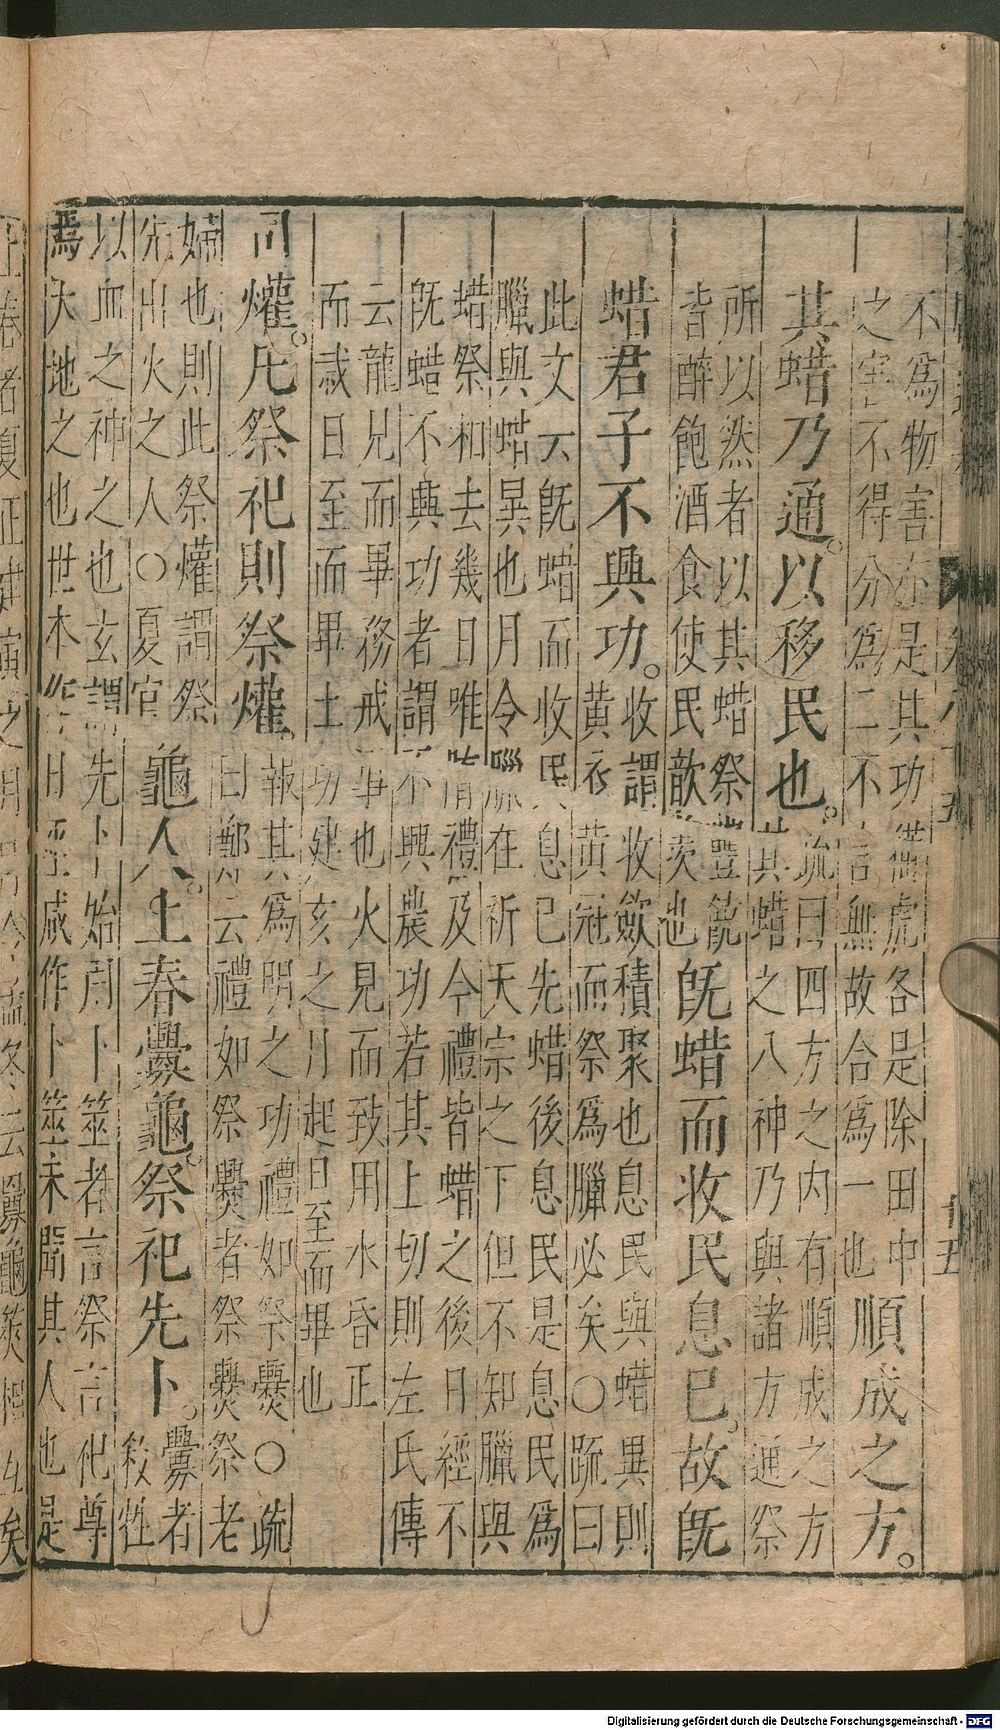 不爲物害亦是其功猫虎各是除田中
之害不得分爲二不言無故合爲一也
順成之方。
其蜡乃通。以移民也。
疏曰四方之内有順成之方
其蜡之八神乃與諸方通祭
所以然者以其蜡祭豐饒
皆醉飽酒食使民歆羨也
旣蜡而收民息已。故旣
蜡君子不興功。
收謂收斂積聚也息民與蜡異則
黃衣黃冠而祭爲臘必矣○疏曰
此文云旣蜡而收民息已先蜡後息民是息民爲
臘與蜡異也月令臘在祈天宗之下但不知臘與
蜡祭相去幾日唯禮及今禮皆蜡之後日經不
旣蜡不興功者謂不興農功若其上切則左氏傳
云龍見而畢務戒事也火見而致用水昏正
而栽日至而畢土功建亥之月起日至而畢也
司爟。凡祭祀則祭爟。
報其爲明之功禮如祭爨○疏
曰鄭云禮如祭爨者祭爨祭老
婦也則此祭爟謂祭
先出火之人○夏官
龜人。上春釁龜。祭祀先卜。
釁者
殺牲
以血之神之也玄謂先卜始用卜筮者言祭言祀尊
焉天地之也世本作曰巫咸作卜筮未聞其人也是